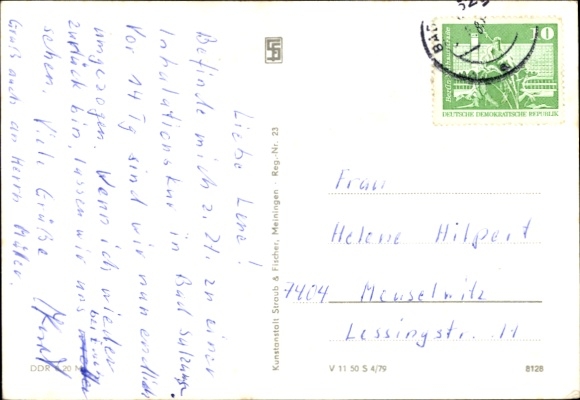 Liebe Lene!
Befinde mich z. Zt. zu einer
Inhalationskur in Bad Salzungen.
Vor 14 Tg sind wir nun endlich
umgezogen. Wenn ich wieder
zurück bin, lassen wir uns
sehen. Viele Grüße
Gruß auch an Herrn
Kunstanstalt Straub & Fischer, Meiningen · Reg.-Nr. 23
DDR
10
DEUTSCHE DEMOKRATISCHE REPUBLIK
BAD
Frau
Helene Hilpert
7404 Meuselwitz
Lessingstr. 11
V 11 50 S 4/79
8128